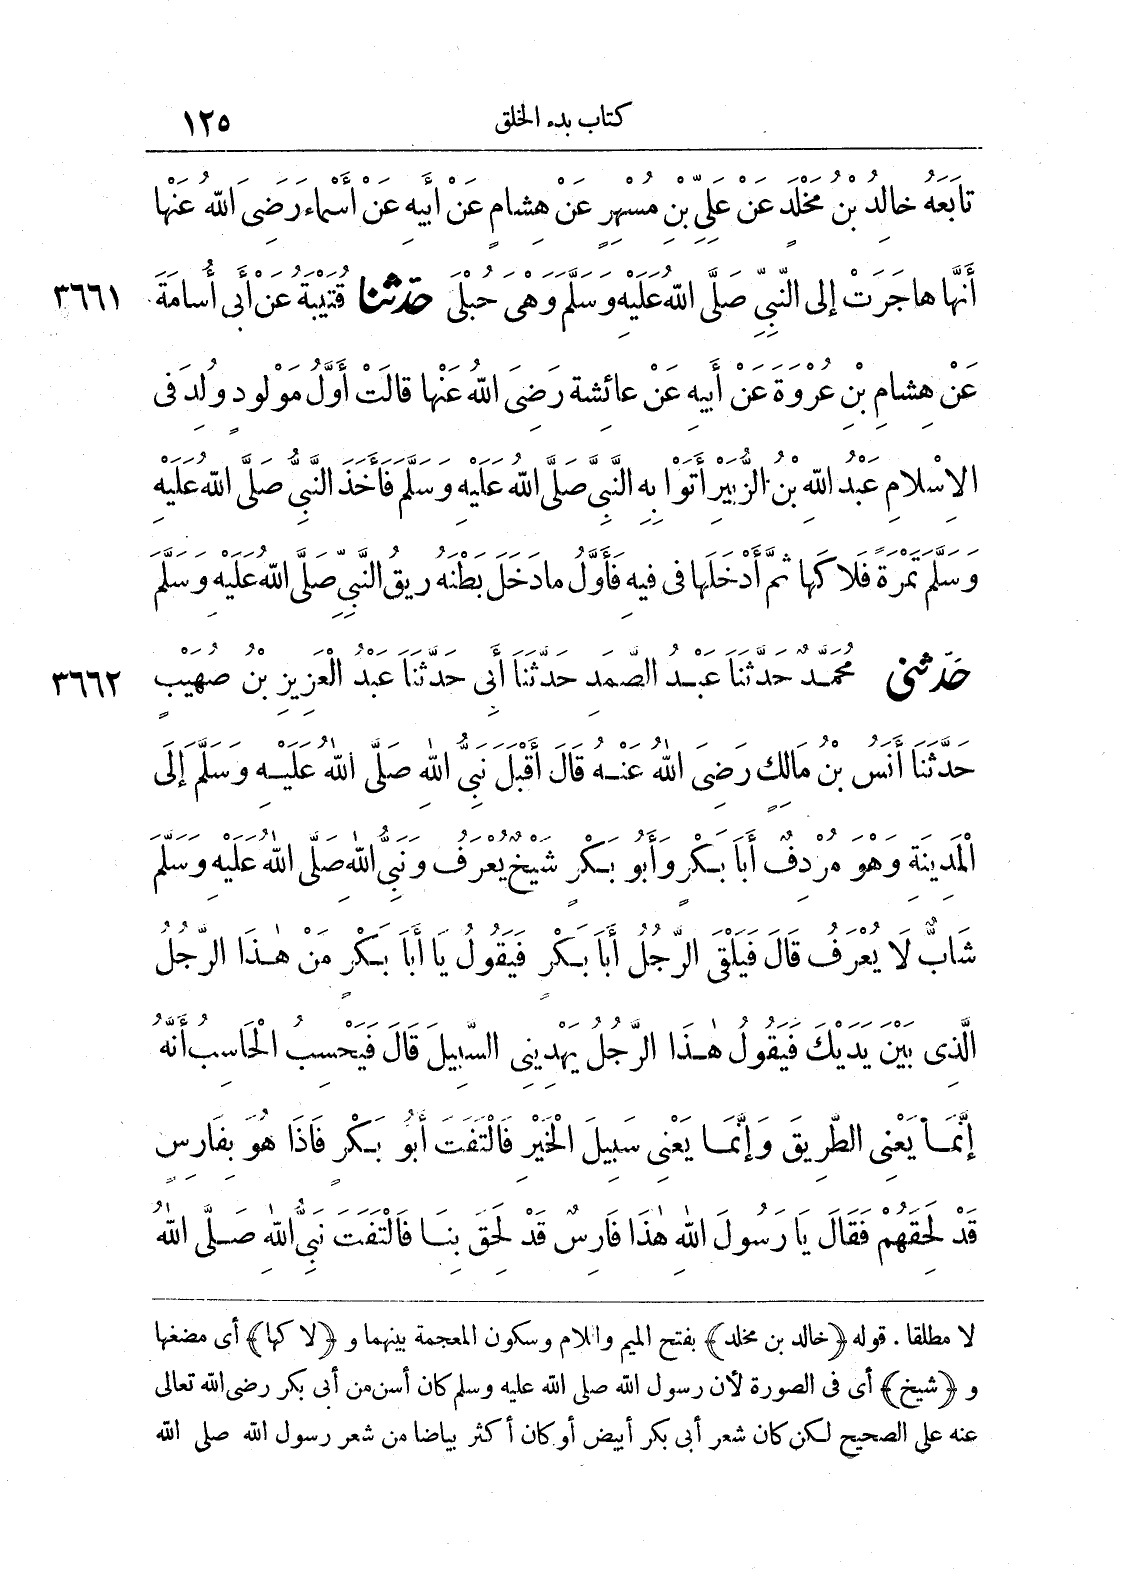 كتاب بدء الخلق ١٢٥
تَابَعَهُ خَالِدُ بْنُ مَخْلَدٍ عَنْ عَلِيِّ بْنِ مُسْهِرٍ عَنْ هِشَامٍ عَنْ أَبِيهِ عَنْ أَسْمَاءَ رَضِىَ اللّٰهُ عَنْهَا
أَنَّهَا هَاجَرَتْ إِلَى النَّبِيِّ صَلَّى اللّٰهُ عَلَيْهِ وَسَلَّمَ وَهْىَ حُبْلَى حَدَّثَنَا قُتَيْبَةُ عَنْ أَبِى أُسَامَةَ ٣٦٦١
عَنْ هِشَامِ بْنِ عُرْوَةَ عَنْ أَبِيهِ عَنْ عَائِشَةَ رَضِىَ اللّٰهُ عَنْهَا قَالَتْ أَوَّلُ مَوْلُودٍ وُلِدَ فِى
الإِسْلَامِ عَبْدُ اللّٰهِ بْنُ الزُّبَيْرِ أَتَوْا بِهِ النَّبِىَّ صَلَّى اللّٰهُ عَلَيْهِ وَسَلَّمَ فَأَخَذَ النَّبِىُّ صَلَّى اللّٰهُ عَلَيْهِ
وَسَلَّمَ تَمْرَةً فَلَاكَهَا ثُمَّ أَدْخَلَهَا فِى فِيهِ فَأَوَّلُ مَا دَخَلَ بَطْنَهُ رِيقُ النَّبِيِّ صَلَّى اللّٰهُ عَلَيْهِ وَسَلَّمَ
حَدَّثَنِى مُحَمَّدٌ حَدَّثَنَا عَبْدُ الصَّمَدِ حَدَّثَنَا أَبِى حَدَّثَنَا عَبْدُ الْعَزِيزِ بْنُ صُهَيْبٍ ٣٦٦٢
حَدَّثَنَا أَنَسُ بْنُ مَالِكٍ رَضِىَ اللّٰهُ عَنْهُ قَالَ أَقْبَلَ نَبِىُّ اللّٰهِ صَلَّى اللّٰهُ عَلَيْهِ وَسَلَّمَ إِلَى
الْمَدِينَةِ وَهْوَ مُرْدِفٌ أَبَا بَكْرٍ وَأَبُو بَكْرٍ شَيْخٌ يُعْرَفُ وَنَبِىُّ اللّٰهِ صَلَّى اللّٰهُ عَلَيْهِ وَسَلَّمَ
شَابٌّ لَا يُعْرَفُ قَالَ فَيَلْقَى الرَّجُلُ أَبَا بَكْرٍ فَيَقُولُ يَا أَبَا بَكْرٍ مَنْ هٰذَا الرَّجُلُ
الَّذِى بَيْنَ يَدَيْكَ فَيَقُولُ هٰذَا الرَّجُلُ يَهْدِينِى السَّبِيلَ قَالَ فَيَحْسِبُ الْحَاسِبُ أَنَّهُ
إِنَّمَا يَعْنِى الطَّرِيقَ وَإِنَّمَا يَعْنِى سَبِيلَ الْخَيْرِ فَالْتَفَتَ أَبُو بَكْرٍ فَاذَا هُوَ بِفَارِسٍ
قَدْ لَحِقَهُمْ فَقَالَ يَا رَسُولَ اللّٰهِ هٰذَا فَارِسٌ قَدْ لَحِقَ بِنَا فَالْتَفَتَ نَبِىُّ اللّٰهِ صَلَّى اللّٰهُ
لا مطلقا . قوله ﴿خالد بن مخلد﴾ بفتح الميم واللام وسكون المعجمة بينهما و ﴿لاكها﴾ أى مضغها
و ﴿شيخ﴾ أى فى الصورة لأن رسول الله صلى الله عليه وسلم كان أسن من أبى بكر رضى الله تعالى
عنه على الصحيح لكن كان شعر أبى بكر أبيض أو كان أكثر بياضا من شعر رسول الله صلى الله